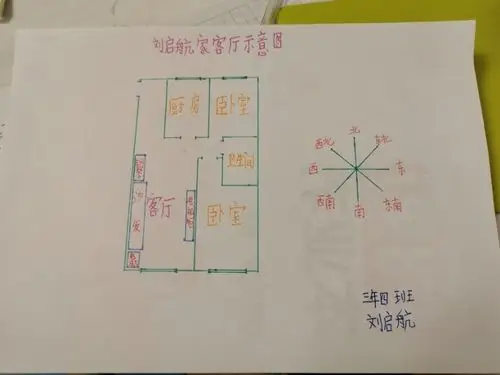 刘启航家客厅示意图
厨房
卧室
卫生间
客厅
沙发
卧室
北
西北
东北
西
东
西南
南
东南
三年四班
刘启航